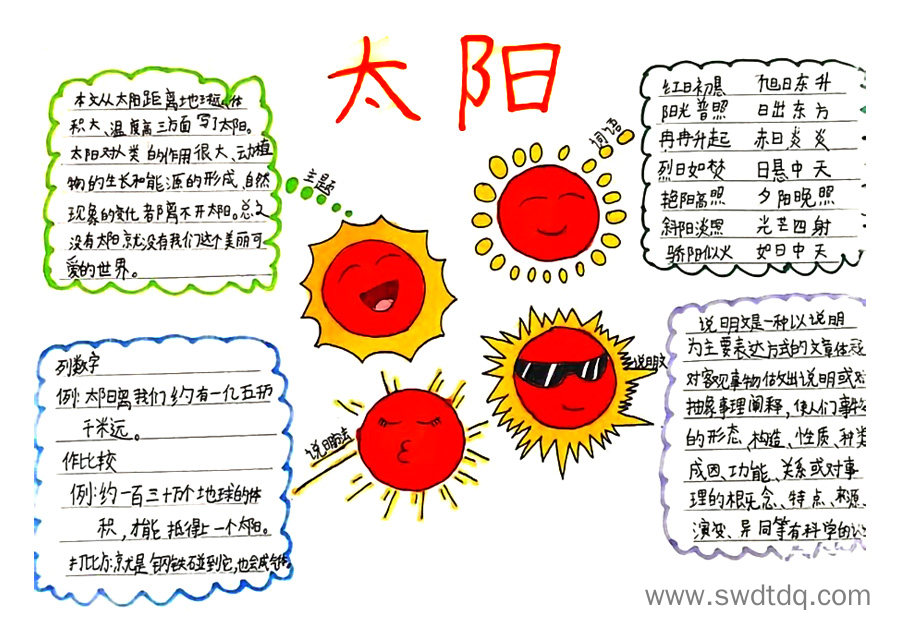 太阳
本文从太阳距离地球远、体
积大、温度高三方面写了太阳。
太阳对人类的作用很大、动植
物的生长和能源的形成,自然
现象的变化都离不开太阳。总之
没有太阳就没有我们这个美丽可
爱的世界。
主题
词语
红日初悬 旭日东升
阳光普照 日出东方
冉冉升起 赤日炎炎
烈日如焚 日悬中天
艳阳高照 夕阳晚照
斜阳淡照 光芒四射
骄阳似火 如日中天
列数字
例:太阳离我们约有一亿五千万
千米远。
作比较
例:约一百三十万个地球的体
积,才能抵得上一个太阳。
打比方:就是钢铁碰到它,也会成
说明方法
说明文
说明文是一种以说明
为主要表达方式的文章体
对客观事物做出说明或对
抽象事理阐释,使人们事物
的形态、构造、性质、种类
成因、功能、关系或对事
理的概念、特点、来源、
演变、异同等有科学的
www.swdtdq.com